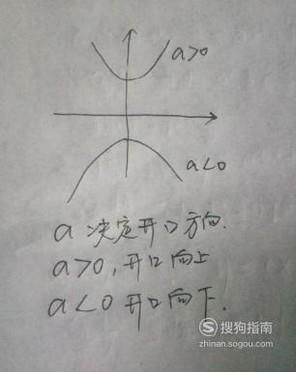 a>0
a<0
a 决定开口方向.
a>0,开口向上
a<0 开口向下.
搜狗指南
zhinan.sogou.com